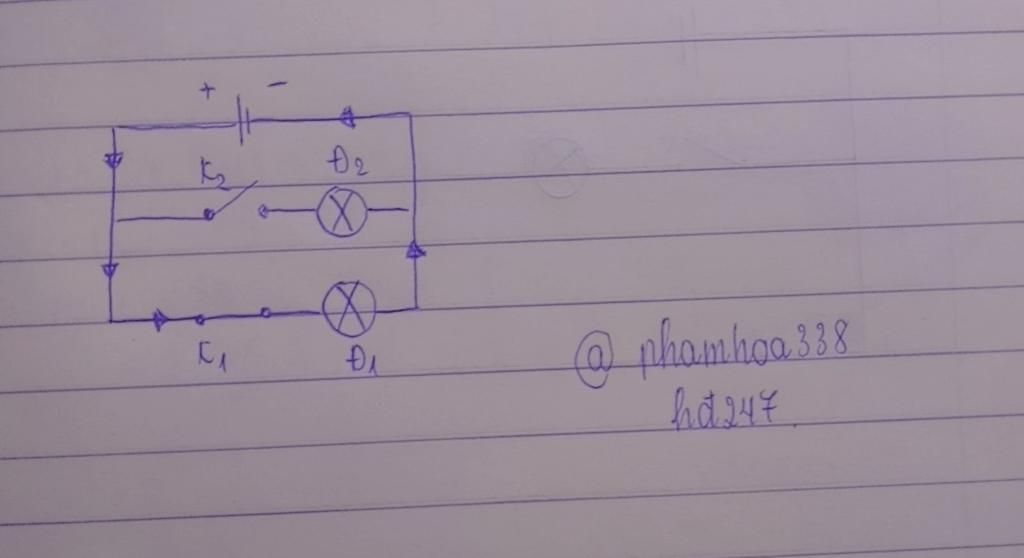 + -
K2 Đ2
K1 Đ1
@ phamhoa338
hđ247